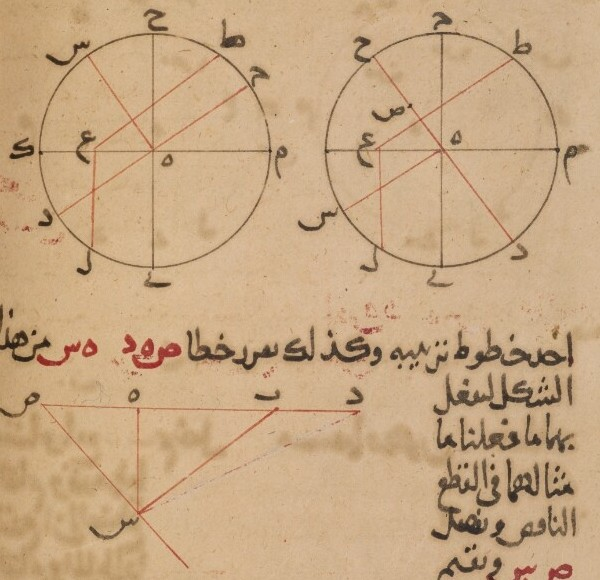 ح
س
ط
ح
ع
ه
ك
م
د
ل
ح
ط
ص
ع
ه
م
س
ل
د
احد خطوط تربيبه وكذلك نفرد خطا ص ه د ه س من هذا
الشكل لنفعل
بهما ما فعلنا ما
مثالهما في القطع
الناقص ونصل
ص س ونقيم
ص
ه
ب
د
س